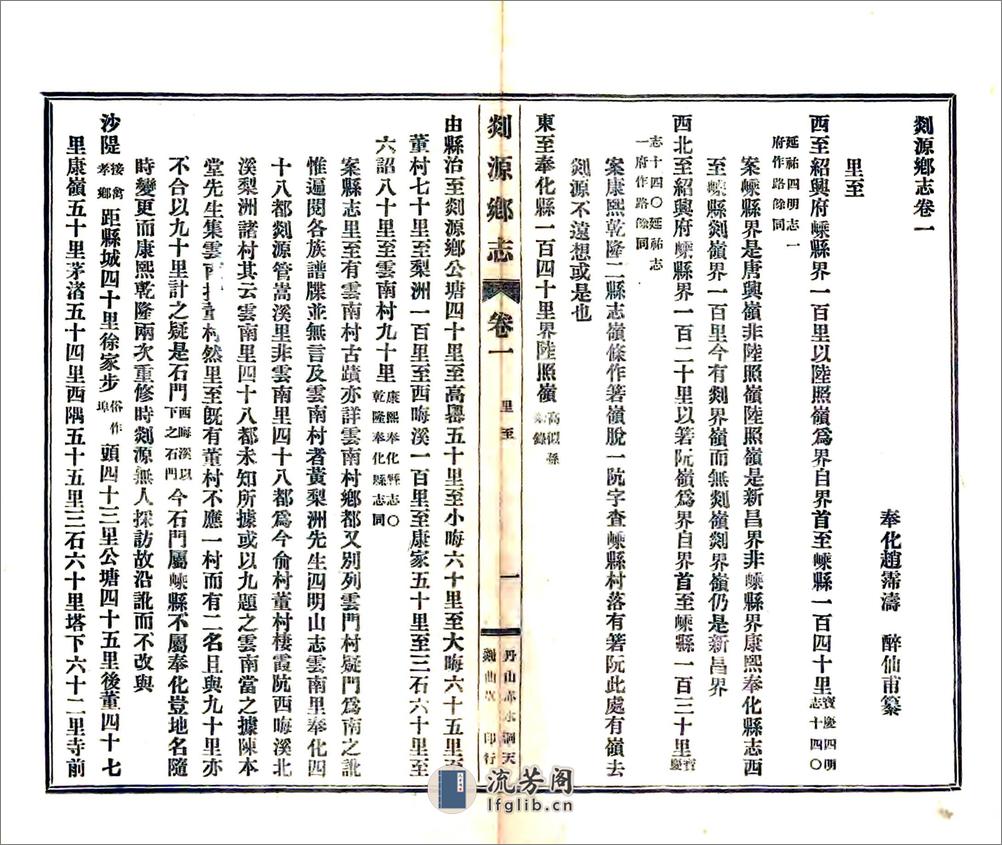 剡源鄉志卷一
奉化趙霈濤 醉仙甫纂
里至
西至紹興府嵊縣界一百里以陸照嶺爲界自界首至嵊縣一百四十里寶慶四明志十四〇
延祐四明志一府作路餘同
案嵊縣界是唐興嶺非陸照嶺陸照嶺是新昌界非嵊縣界康熙奉化縣志西
至嵊縣剡嶺界一百里今有剡界嶺而無剡嶺剡界嶺仍是新昌界
西北至紹興府嵊縣界一百二十里以箬阮嶺爲界自界首至嵊縣一百三十里寶慶
志十四〇延祐志一府作路餘同
案康熙乾隆二縣志嶺條作箬嶺脫一阮字查嵊縣村落有箬阮此處有嶺去
剡源不遠想或是也
東至奉化縣一百四十里界陸照嶺高似孫剡錄
剡源鄉志 卷一 里至 一 丹山赤水洞天 剡曲草 印行
由縣治至剡源鄉公塘四十里至高嶴五十里至小晦六十里至大晦六十五里至
董村七十里至梨洲一百里至西晦溪一百里至康家五十里至三石六十里至
六詔八十里至雲南村九十里康熙奉化縣志〇乾隆奉化縣志同
案縣志里至有雲南村古蹟亦詳雲南村鄉都又別列雲門村疑門爲南之訛
惟遍閱各族譜牒並無言及雲南村者黃梨洲先生四明山志雲南里奉化四
十八都剡源管嵩溪里非雲南里四十八都爲今俞村董村棲霞阬西晦溪北
溪梨洲諸村其云雲南里四十八都未知所據或以九題之雲南當之據陳本
堂先生集雲南指董村然里至旣有董村不應一村而有二名且與九十里亦
不合以九十里計之疑是石門西晦溪以下之石門今石門屬嵊縣不屬奉化豈地名隨
時變更而康熙乾隆兩次重修時剡源無人採訪故沿訛而不改與
沙隄接禽孝鄉距縣城四十里徐家步俗作埠頭四十三里公塘四十五里後董四十七
里康嶺五十里茅渚五十四里西隅五十五里三石六十里塔下六十二里寺前
流芳阁
lfglib.cn